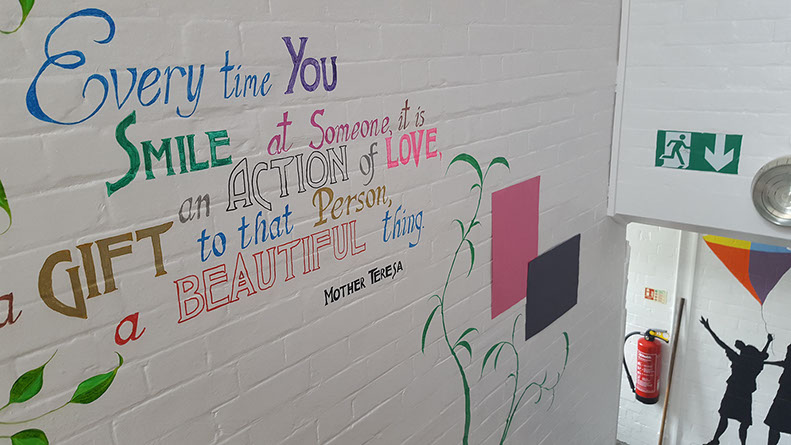 Every time YOU
SMILE at Someone, it is
an ACTION of LOVE,
a GIFT to that Person,
a BEAUTIFUL thing.
MOTHER TERESA